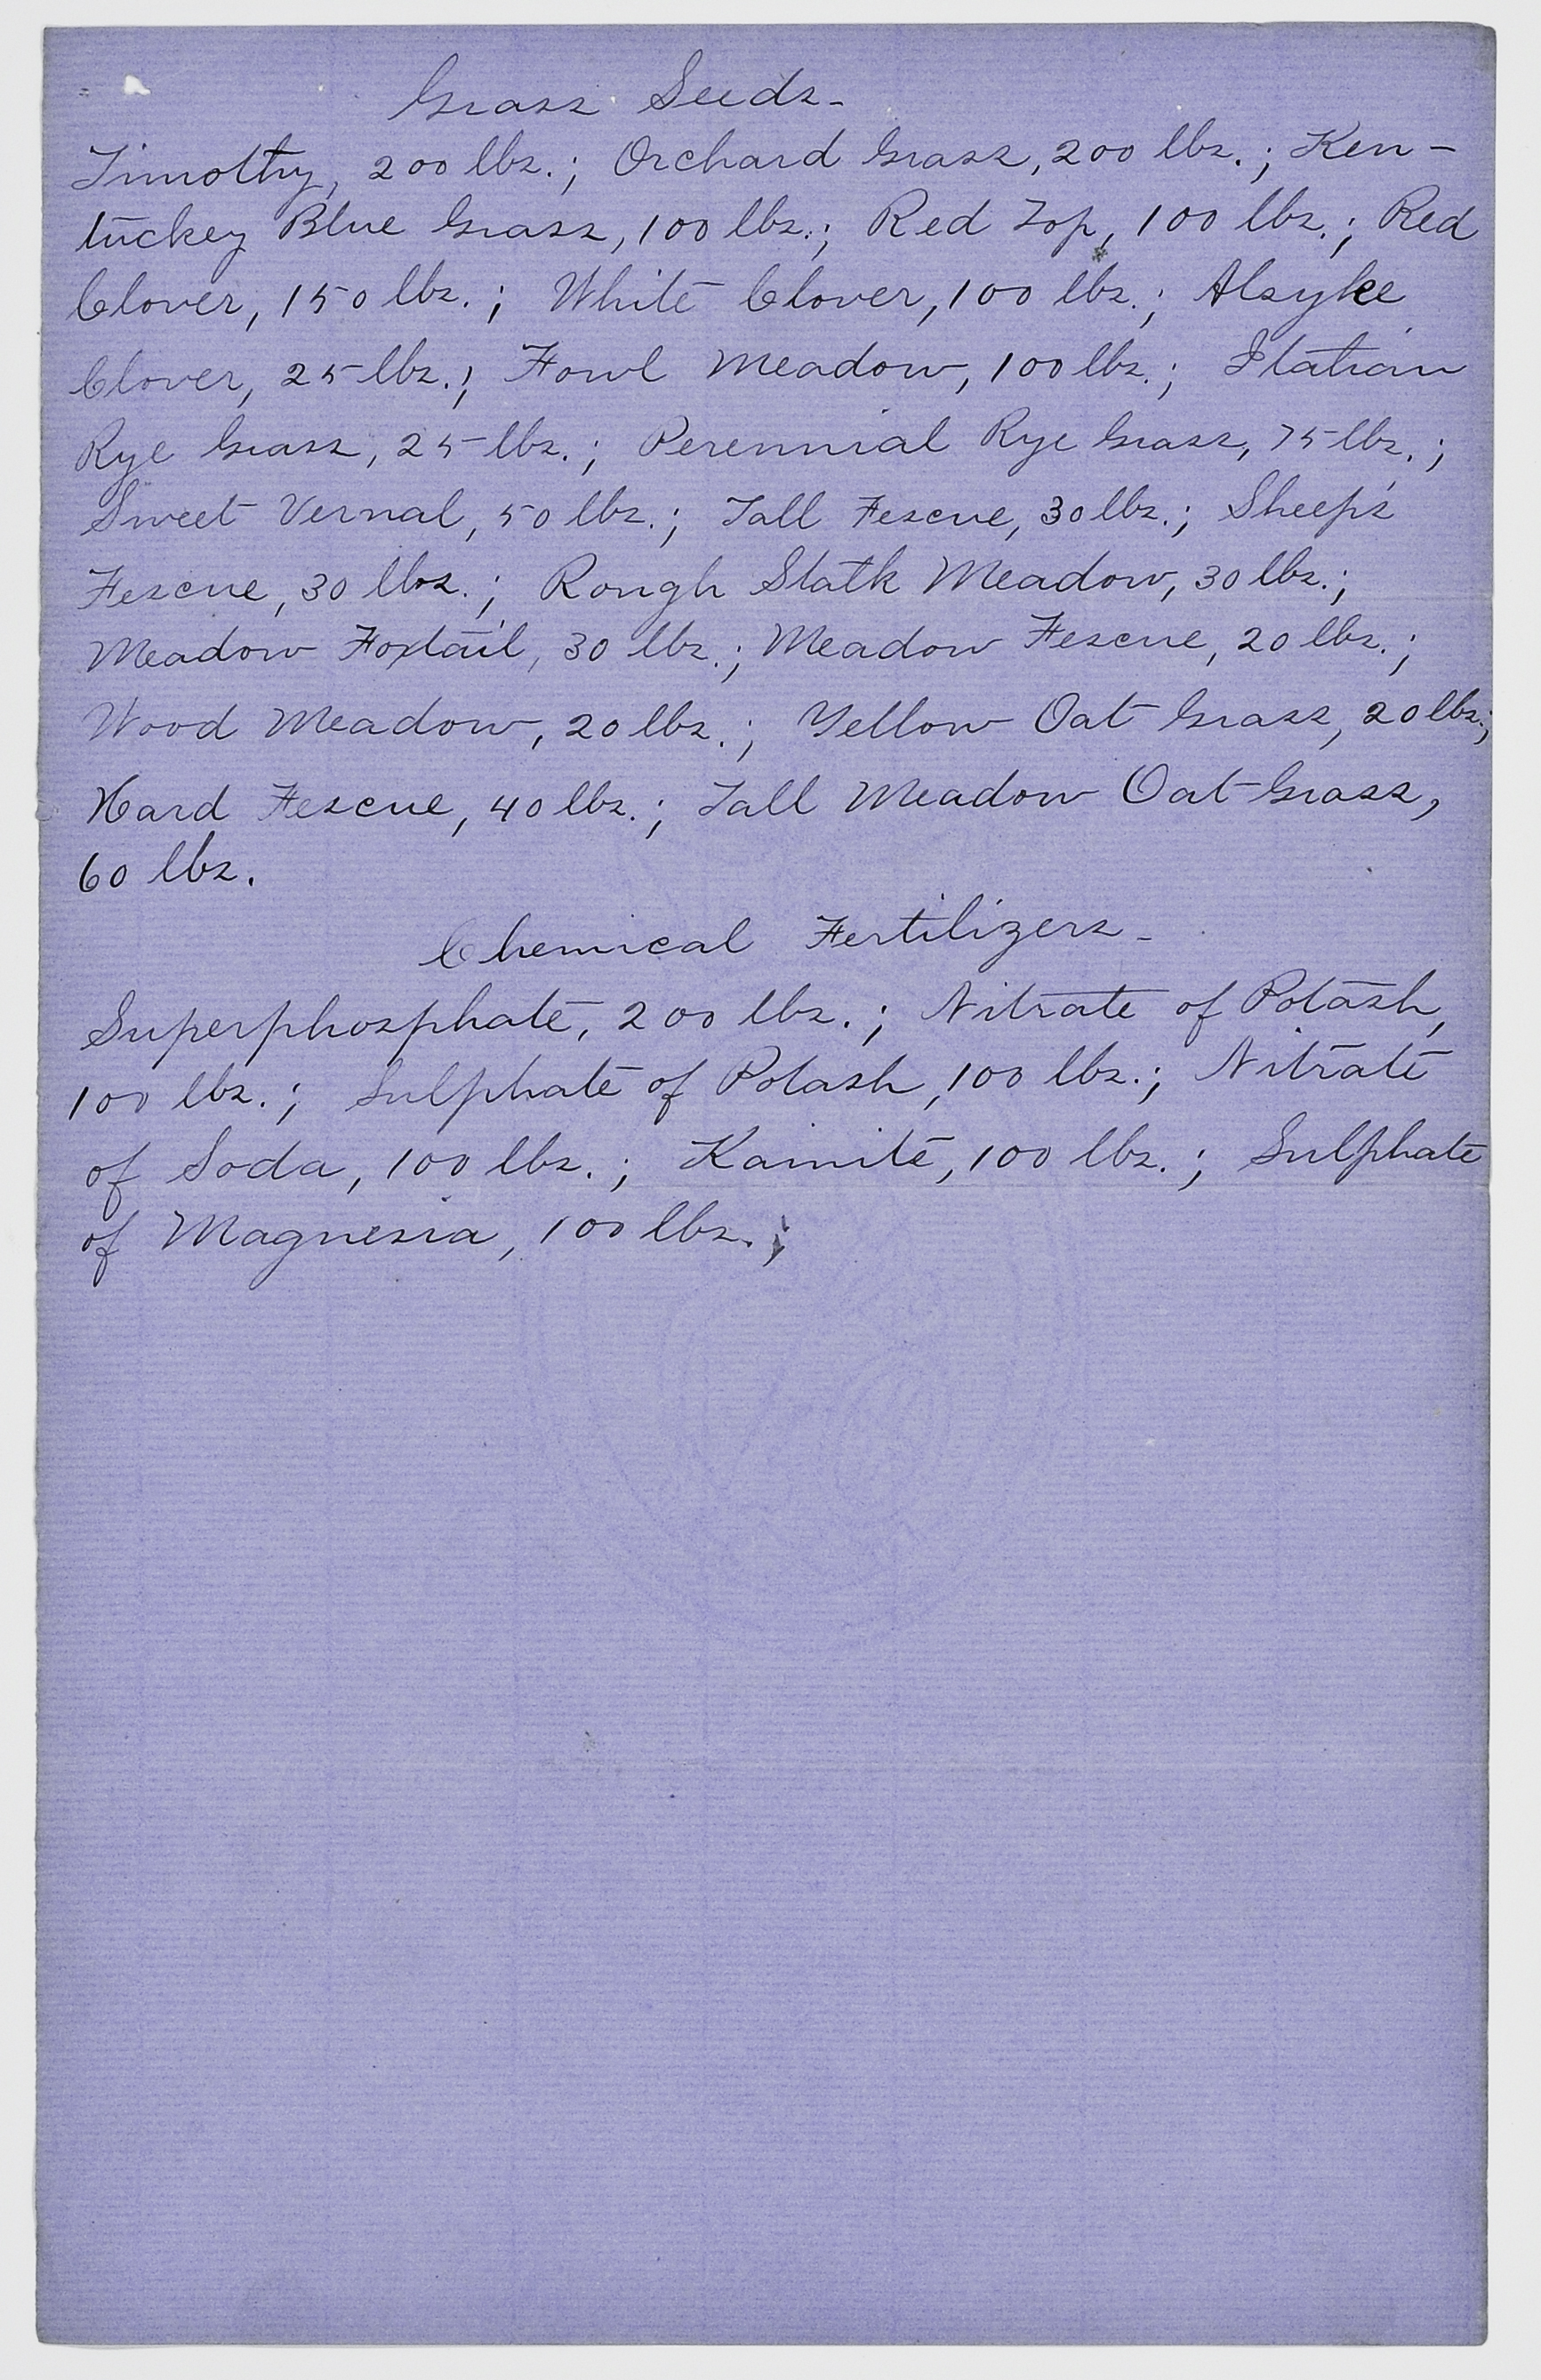 Grass Seeds-
Timothy, 200 lbs.; Orchard Grass, 200 lbs.; Ken-
tuckey Blue Grass, 100 lbs.; Red Top, 100 lbs.; Red
Clover, 150 lbs.; White Clover, 100 lbs.; Alsyke
Clover, 25 lbs.; Fowl Meadow, 100 lbs.; Italian
Rye Grass, 25 lbs.; Perennial Rye Grass, 75 lbs.;
Sweet Vernal, 50 lbs.; Tall Fescue, 30 lbs.; Sheep's
Fescue, 30 lbs.; Rough Stalk Meadow, 30 lbs.;
Meadow Foxtail, 30 lbs.; Meadow Fescue, 20 lbs.;
Wood Meadow, 20 lbs.; Yellow Oat Grass, 20 lbs.;
Hard Fescue, 40 lbs.; Tall Meadow Oat Grass,
60 lbs.
Chemical Fertilizers-
Superphosphate, 200 lbs.; Nitrate of Potash,
100 lbs.; Sulphate of Potash, 100 lbs.; Nitrate
of Soda, 100 lbs.; Kainite, 100 lbs.; Sulphate
of Magnesia, 100 lbs.;